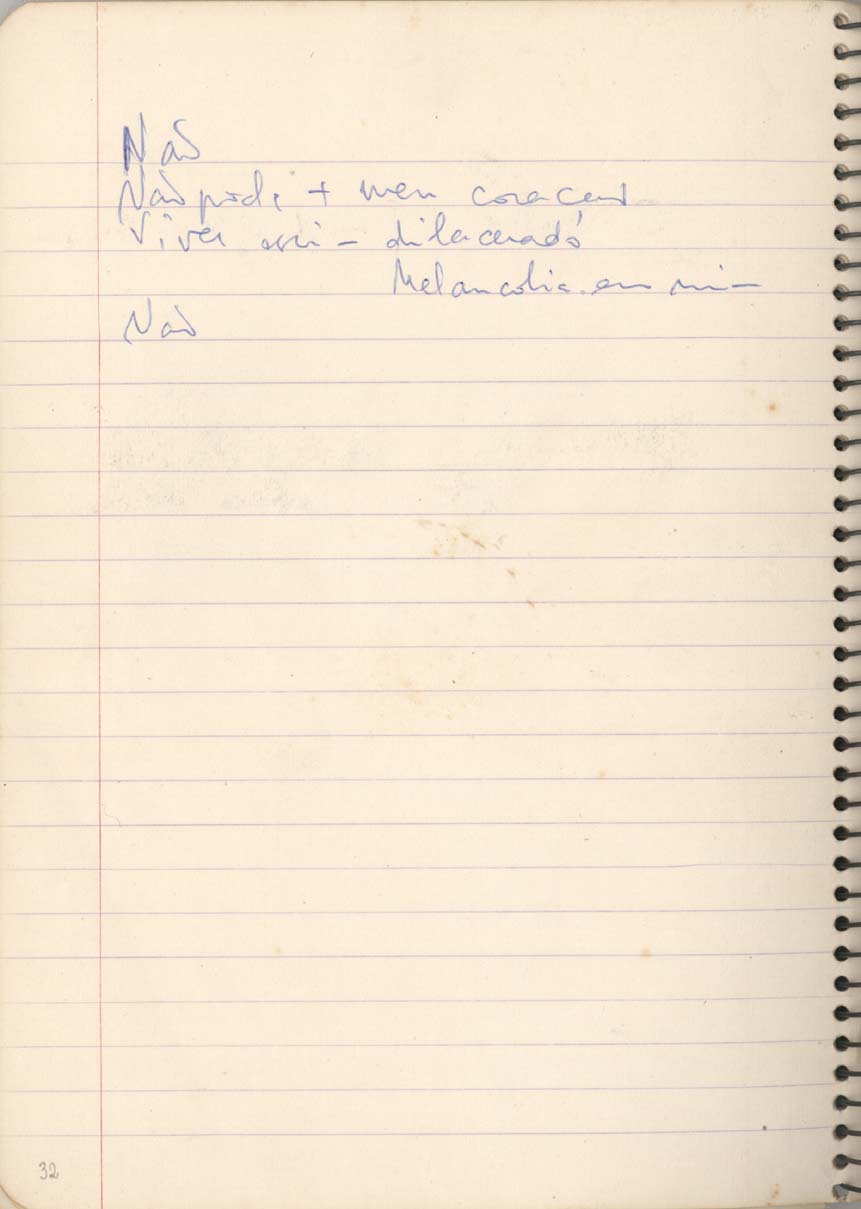 Não
Não pode + meu coração
Viver assim dilacerado
Melancolia em mim
Não
32